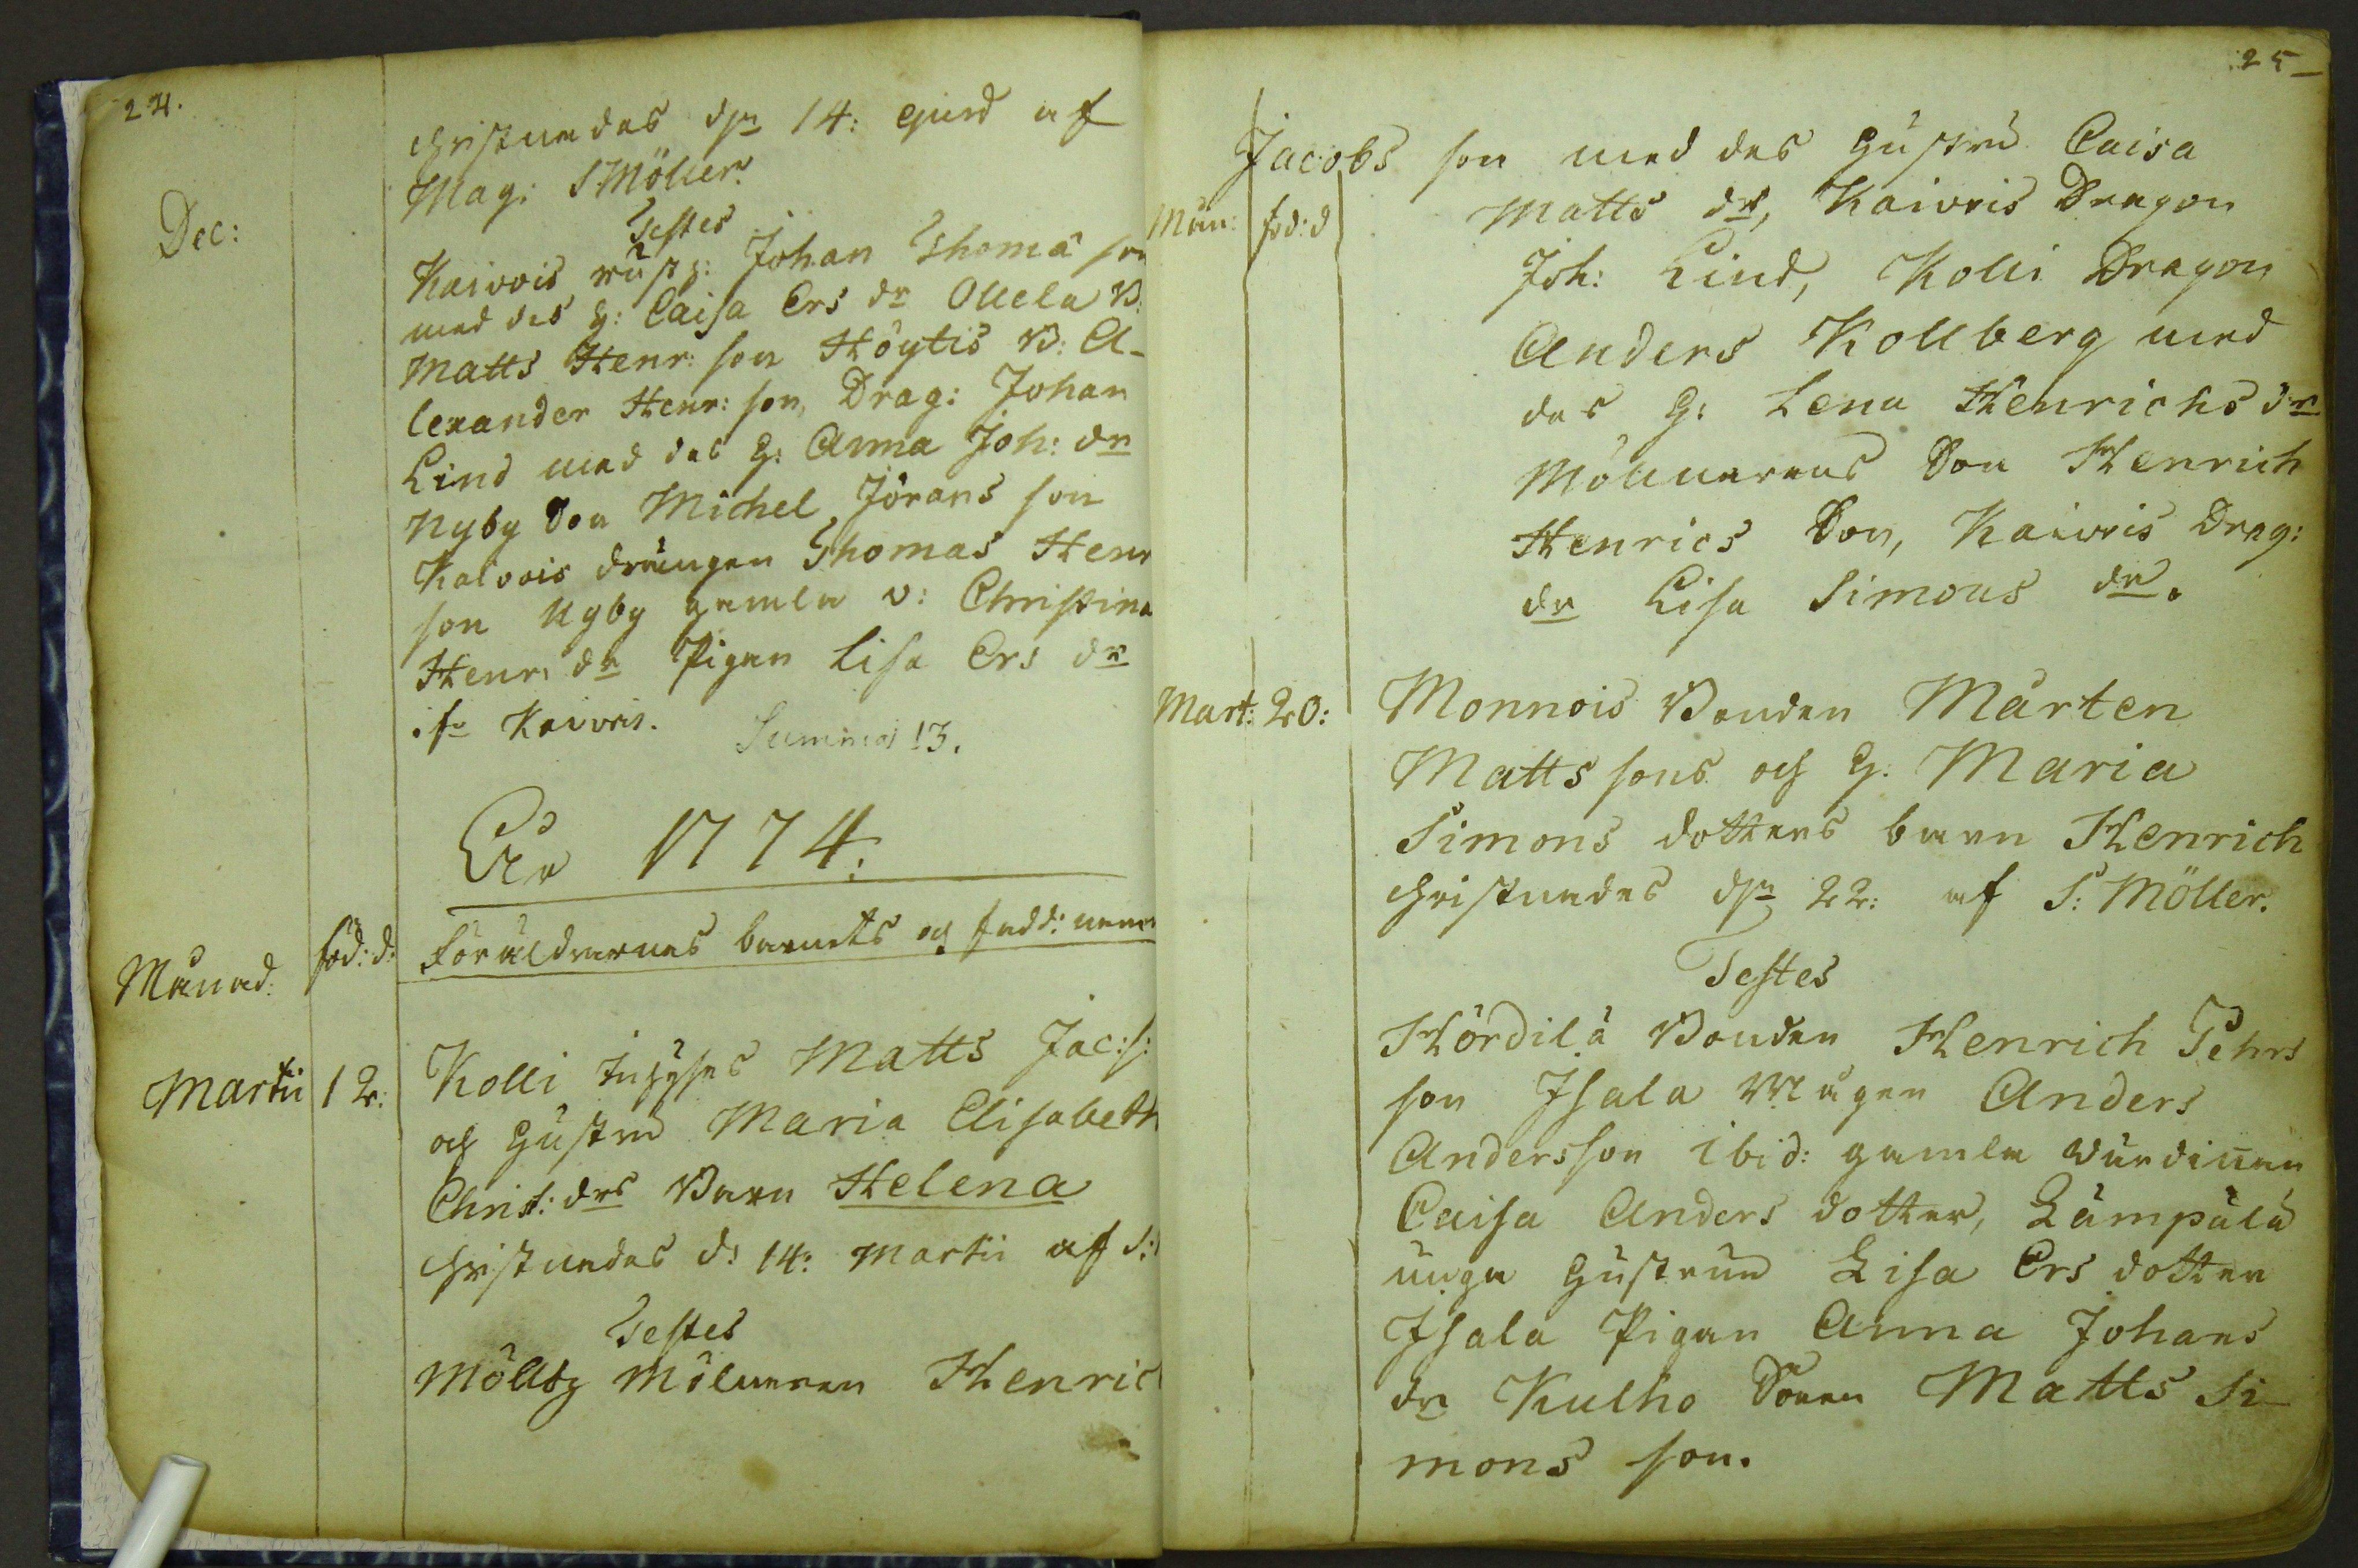 24.
christnades d. 14: ejusd af
Mag: S. Möller.
Testes
Dec:
Kaivois rusth: Johan Thomæ son
med des h: Caisa Ers dr Ollela B:
Matts Henr: son Höytis B: A-
lexander Henr: son, Drag: Johan
Lind med des h: Anna Joh: dr
Nyby Son Michel Jörans son
Kaivois drängen Thomas Henr
son Nyby gamla v: Christina
Henr: dr Pigan Lisa Ers dr
ifr Kaivois. Summa 13.
År 1774:
Månad: föd: d: Föräldrarnas barnets och fadd: namn
Martii 12: Kolli inhyses Matts Jac: s:
och hustru Maria Elisabeth
Christ: drs Barn Helena
christnades d: 14: Martii af S:
Testes
Möllby Mölnaren Henric
25
Jacobs son med des hustru Caisa
Mån: föd: d Matts dr, Kaivois Dragon
Joh: Lind, Kolli Dragon
Anders Kollberg med
des h: Lena Henrichs dr
Möllnarens Son Henrich
Henrics Son, Kaivois Drag:
dr Lisa Simons dr.
Mart: 20: Monnois Bonden Mårten
Matts sons och h. Maria
Simons dotters barn Henrich
christnades d. 22: af S: Möller.
Testes
Hördilä Bonden Henrich Pehrs
son Isala Mågen Anders
Andersson ibid: gamla värdinnan
Caisa Anders dotter, Lämpälä
unga hustrun Lisa Ers dotter
Isala Pigan Anna Johans
dr Kulho Sonen Matts Si-
mons son.